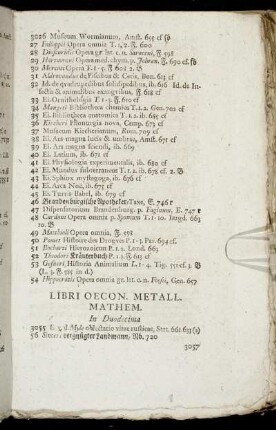 3026 Museum Wormianum, Amst. 655 cf ſb
27 Fallopii Opera omnia T. 1. 2. F. 600
28 Dioſcoridis Opera gr. lat. c. n. Sarraceni, F. 598
29 Hartmanni Opera med. chym. p. Johren. F. 690 cf ſb
30 Mercati Opera T. 1-3. F. 608 2. B
31 Aldrovandus de Piſcibus & Cetis, Bon. 613 cf
32 Id. de quadrupedibus ſolidipedibus, ib. 616 Id. de In-
ſectis & animalibus exanguibus, F. 618 cf
33 Ei. Ornithologia T. 1-3. F. 610 cf
34 Mangeti Bibliotheca chemica T. 1. 2. Gen. 702 cf
35 Ei. Bibliotheca anatomica T. 1. 2. ib. 685 cf
36 Kircheri Phonurgia nova, Camp. 673 cf
37 Muſæum Kircherianum, Rom. 709 cf
38 Ei. Ars magna lucis & umbrae, Amst. 671 cf
39 Ei. Ars magna ſciendi, ib. 669
40 Ei. Latium, ib. 671 cf
41 Ei. Phyſiologia experimentalis, ib. 680
42 Ei. Mundus ſubterraneus T. 1. 2. ib. 678 cf. 2. B
43 Ei. Sphinx myſtagoga, ib. 676 cf
44 Ei. Arca Noe, ib. 675 cf
45 Ei. Turris Babel, ib. 679 cf
46 Brandenburgiſche Apotheker-Taxe, E. 746 r
47 Diſpenſatorium Brandenburg. p. E. 747 r
48 Cardani Opera omnia p. Sponium T. 1-10. Lugd. 663
10. B
49 Matthioli Opera omnia, F. 598
50 Pomet Hiſtoire des Drogues P. 1-3. Par. 694 cf.
51 Bocharti Hierozoicon P. 1. 2. Lond. 663
52 Theodors Kräuterbuch P. 1. 2. F. 613 cf
53 Geſneri, Hiſtoria Animalium L. 1-4. Tig. 551 cf. 3. B
(L. 3. F. 585 in d.)
54 Hippocratis Opera omnia gr. lat. c. n. Foeſii, Gen. 657
LIBRI OECON. METALL.
MATHEM.
In Duodecimo
3055 oblectatio vitae ruſticae, Stet. 661 633 (2)
56 Simons vergnügter Landmann, Nb. 720
3057